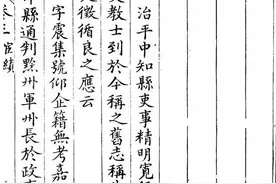 治平中知縣吏事精明寬
教士到於今稱之舊志稱
徵循良之應云
字震集號仰企籍無考嘉
縣通判州軍州長於政
卷三 宦績